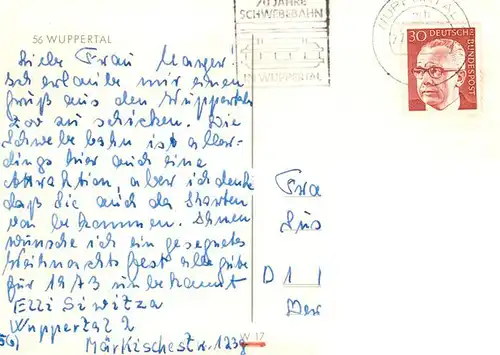 70 JAHRE
SCHWEBEBAHN
IN WUPPERTAL
WUPPERTAL
30 DEUTSCHE
BUNDESPOST
56 WUPPERTAL
Liebe Frau
ich erlaube mir einen
Gruß aus den Wuppertaler
Zoo zu schicken. Die
Schwebebahn ist aller-
dings hier auch eine
Attraktion, aber ich denke
daß Sie auch da Karten
von bekommen. Ihnen
wünsche ich ein gesegnetes
Weihnachtsfest alle gute
für 1973 unbekannt
Elli Siwitza
Wuppertal 2
Märkischestr. 123g
Fra
Lus
D 1 1
Der
W 17